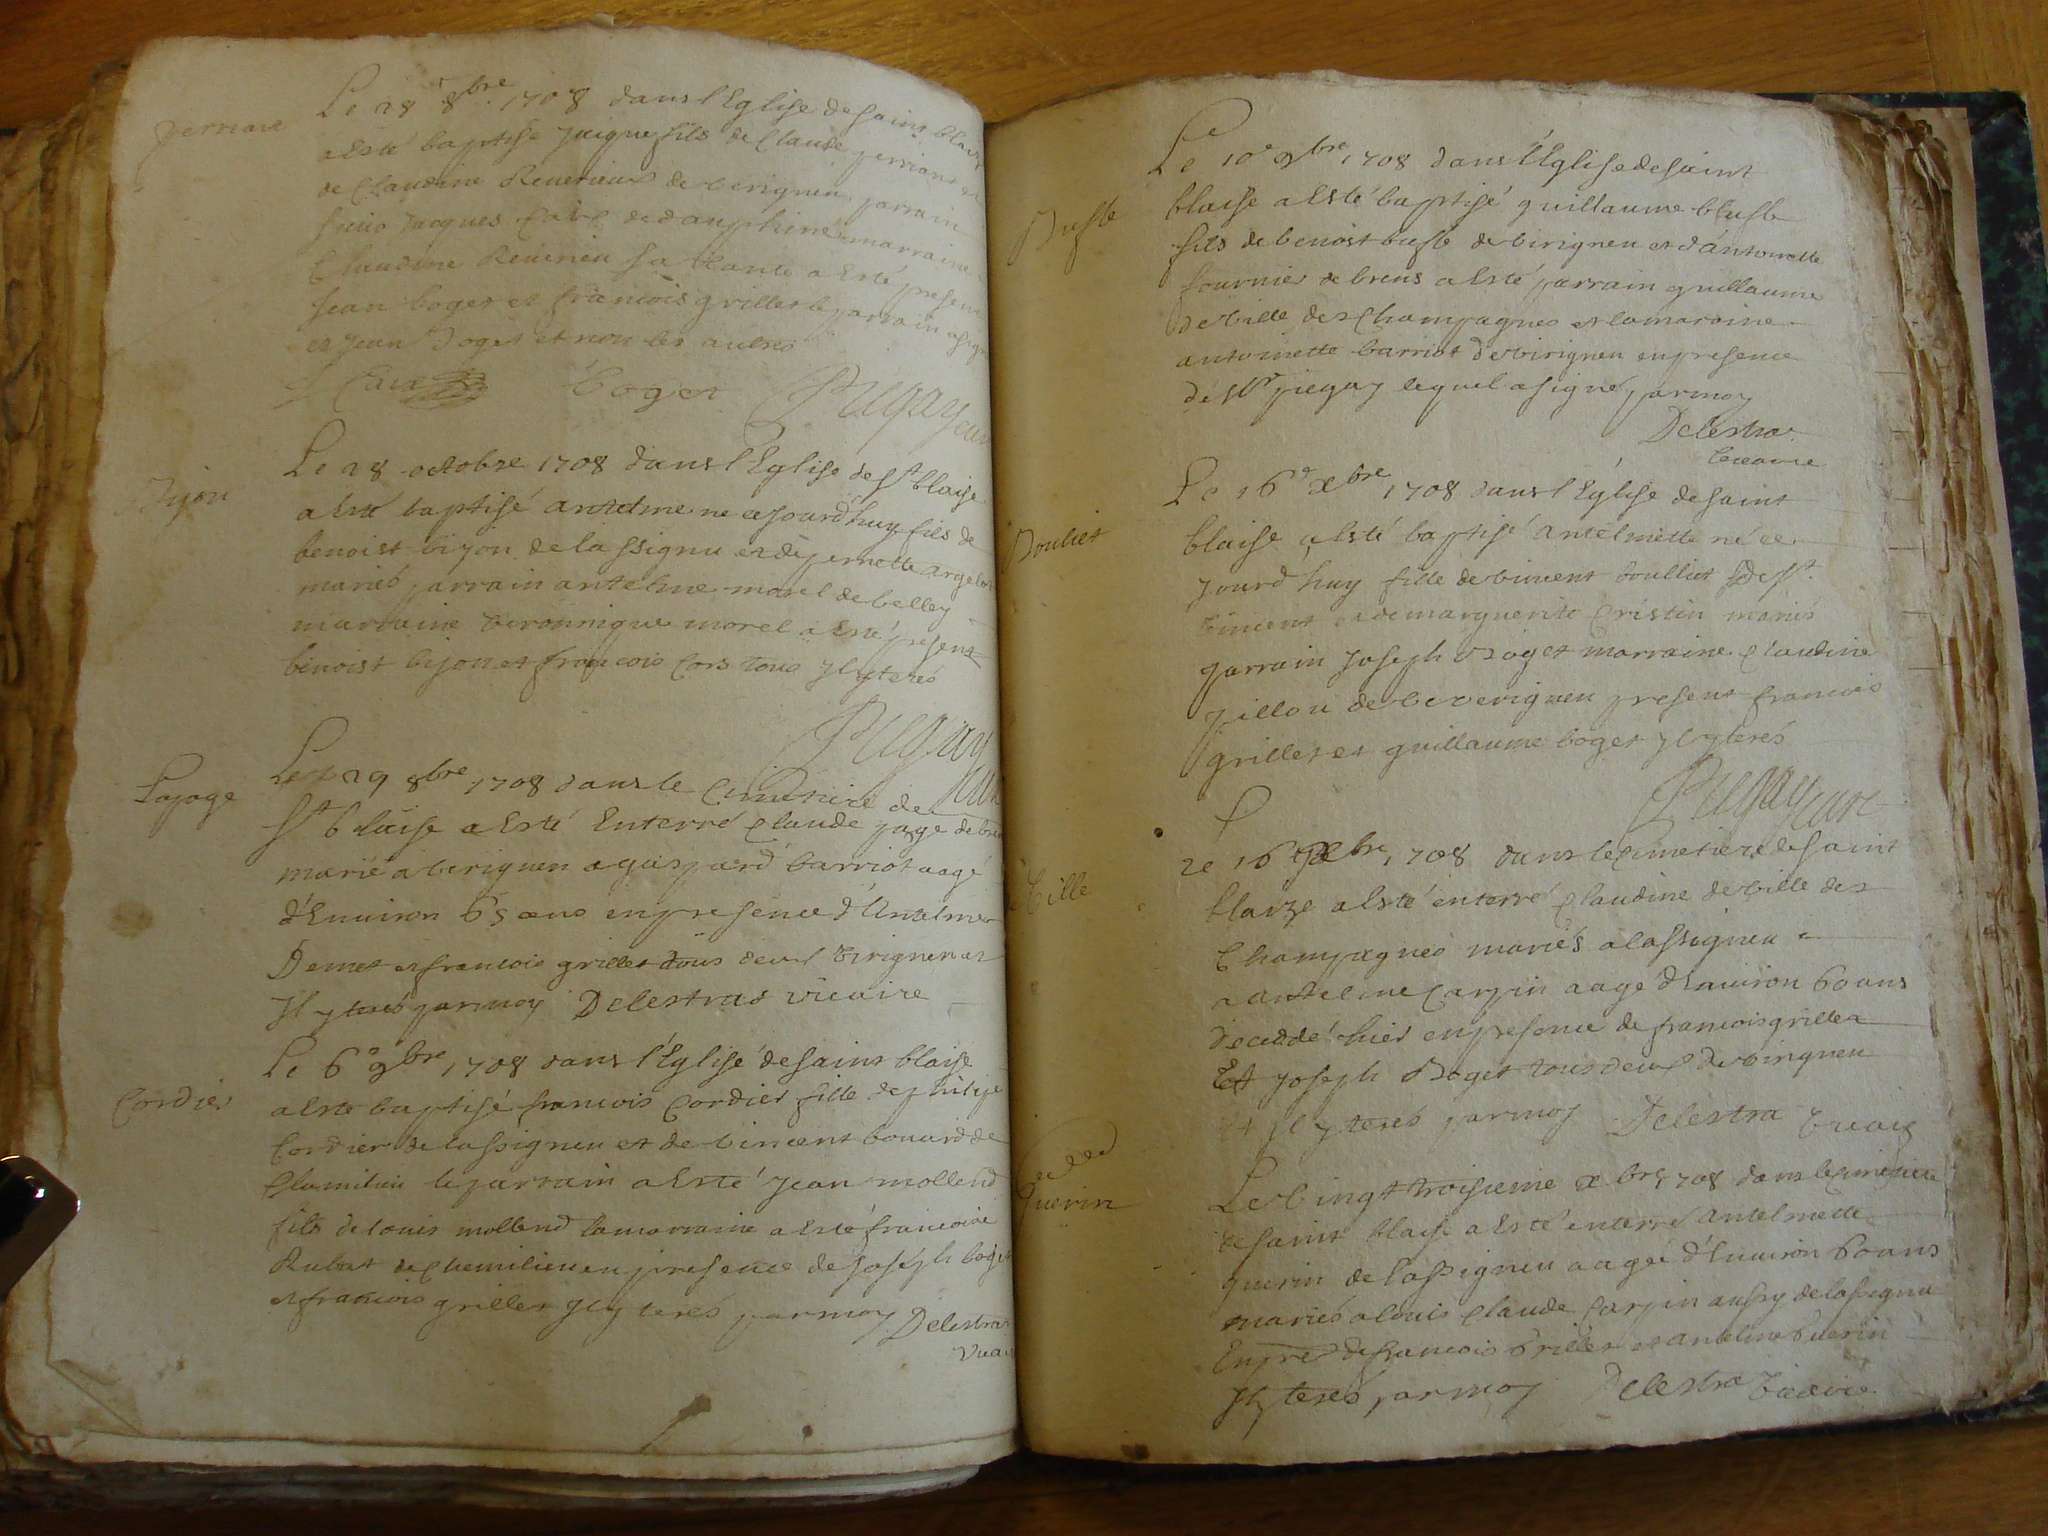 Le 28 8bre 1708 dans l'Eglise de saint blaise
a esté baptisé Jacque fils de Claude
de Claudine Reverieux de virignieu parrain
Jacques Cave de dauphine marraine
Claudine Reverieu sa tante a esté present
Jean boget et francois grillet le parrain a signé
et Jean Boget et non les autres
J Cave boget Pugay curé
Bijou
Le 28 octobre 1708 dans l'Eglise de St blaise
a esté baptisé antelme ne ce jourdhuy fils de
benoist bijon de lassignu et de pernette
mariés parrain antelme morel de belley
marraine veronnique morel a esté present
benoist bijon et francois Cors tous illyterés
Pugay curé
Lapage
Le 29 8bre 1708 dans le Cimitiere de
St blaise a esté Enterré Claude page de
marié a virignieu a gaspard barriot aagé
d'Environ 65 ans en presence d'Antelme
Demet et francois grillet tous deux virignieu et
Illyterés par moy Delestras vicaire
Cordier
Le 6e 9bre 1708 dans l'Eglise de saint blaise
a este baptisé francois Cordier fille de philipe
Cordier de lassignieu et de vincent bouard de
le parrain a esté jean mollend
fils de louis mollend la marraine a esté francoise
Rubat de Chemilieu en presence de Joseph boget
et francois grillet Illyterés par moy Delestras
vicaire
Buffle
Le 10e 9bre 1708 dans l'Eglise de saint
blaise a Esté baptisé guillaume
fils de benoist de virignieu et d'antoinette
fournier de brens a esté parrain guillaume
deville des Champagnes et la maraine
antoinette barriot de virignieu en presence
de Mr pugay lequel a signé par moy
Delestra
vicaire
Boulliet
Le 16e xbre 1708 dans l'Eglise de saint
blaise a esté baptisé antelmette née ce
jourdhuy fille de vincent boulliet de St
vincent et de marguerite Cristin mariés
parrain joseph Boget marraine Claudine
pillou de virignieu present francois
grillet et guillaume boget illyterés
Pugay curé
Ville
L
Le 16 xbre 1708 dans le cimetiere de saint
blaize a esté enterré Claudine deville des
Champagnes mariés a lassignieu
a antelme Carpin aagé d'Environ 60 ans
decedde hier en presence de francois grillet
Et Joseph Boget tous deux de viringneu
et Illyterés par moy Delestra vicaire
guerin
Le vingt troisieme xbre 1708 dans le cimetiere
de saint blaise a esté enterré antelmette
guerin de lassigneu aagée d'Environ 60 ans
mariés a louis Claude Carpin aussy de lassignu
En pre de francois Grillet et antelme Guerin
Illyterés par moy Delestra vicaire